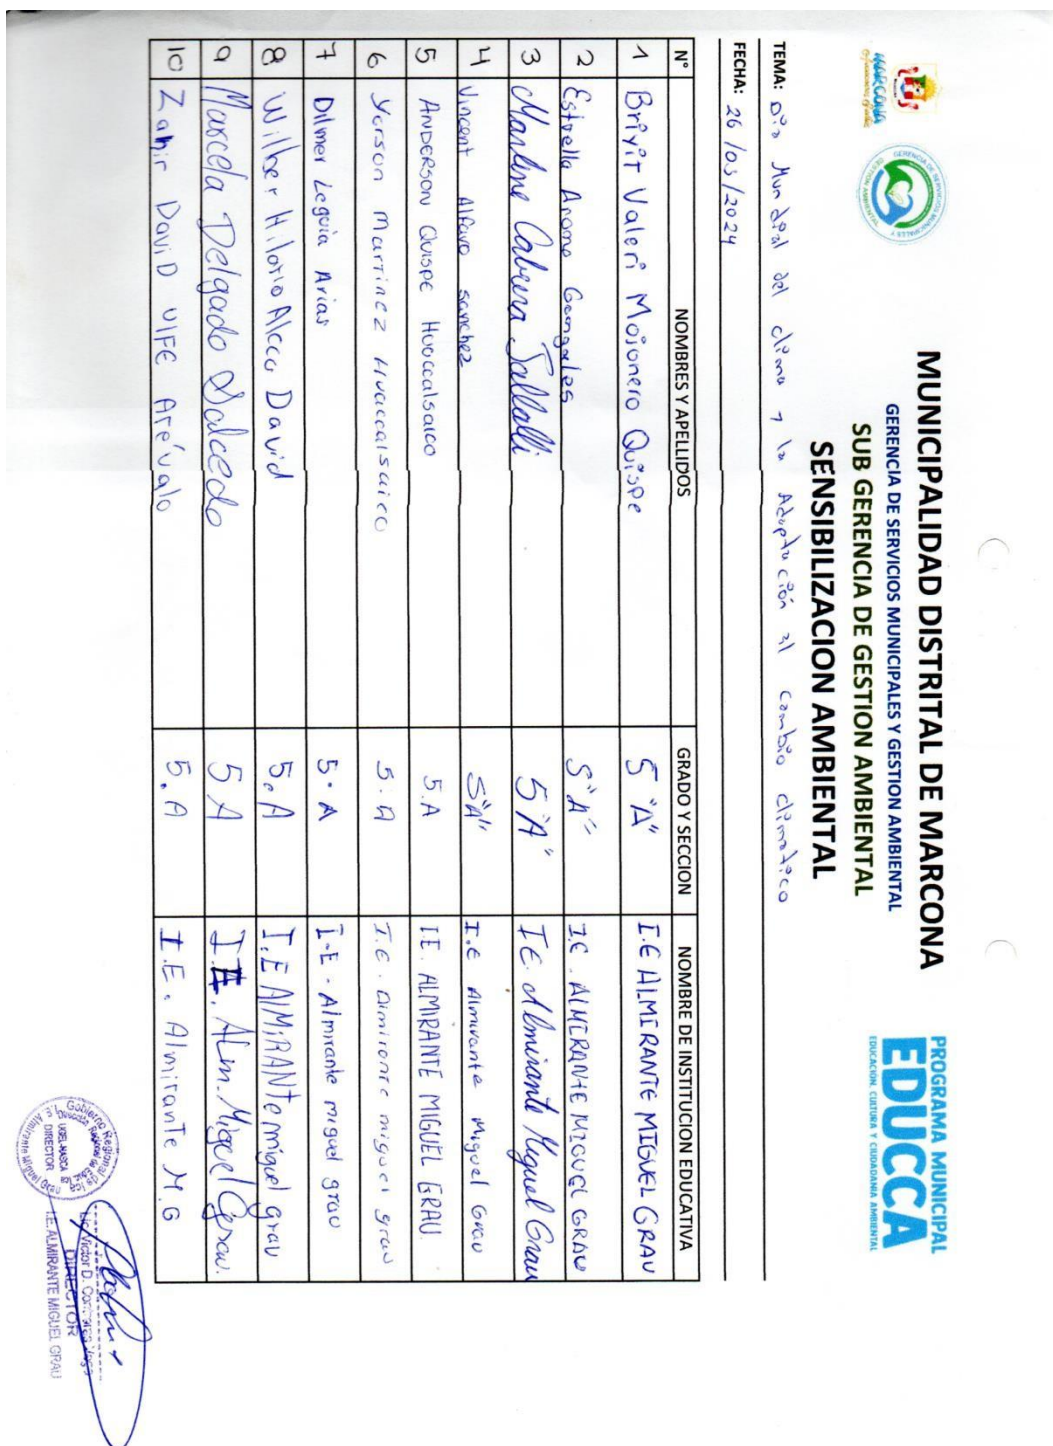 MARCONA
GERENCIA DE SERVICIOS MUNICIPALES Y GESTION AMBIENTAL
MUNICIPALIDAD DISTRITAL DE MARCONA
GERENCIA DE SERVICIOS MUNICIPALES Y GESTION AMBIENTAL
SUB GERENCIA DE GESTION AMBIENTAL
SENSIBILIZACION AMBIENTAL
PROGRAMA MUNICIPAL
EDUCCA
EDUCACIÓN, CULTURA Y CIUDADANÍA AMBIENTAL
TEMA: Día Mundial del clima y la Adaptación al cambio climático
FECHA: 26/03/2024
N° NOMBRES Y APELLIDOS GRADO Y SECCION NOMBRE DE INSTITUCION EDUCATIVA
1 Briyit Valeri Mojonero Quispe 5 "A" I.E ALMIRANTE MIGUEL GRAU
2 Estrella Arone Gongales 5"A" I.E. ALMIRANTE MIGUEL GRAU
3 Marlene Cabrera 5 "A" I.E. Almirante Miguel Grau
4 Vincent Alfaro sanchez 5"A" I.e Almirante Miguel Grau
5 ANDERSON Quispe Huaccalsaico 5.A I.E. ALMIRANTE MIGUEL GRAU
6 Yerson Martinez Huaccalsaico 5.A I.e. Almirante miguel grau
7 Dilmer Leguia Arias 5.A I.E. Almirante miguel grau
8 Wilber Hilario Alcca David 5.A I.E AlMiRANte miguel grau
9 Marcela Delgado Salcedo 5 A I.E. Alm. Miguel Grau.
10 Zahir DaviD Arévalo 5.A I.E. Almirante M.G
Gobierno Regional de Ica
UGEL-NASCA
DIRECTOR
I.E. Almirante Miguel Grau
Lic. Victor D.
DIRECTOR
I.E. ALMIRANTE MIGUEL GRAU